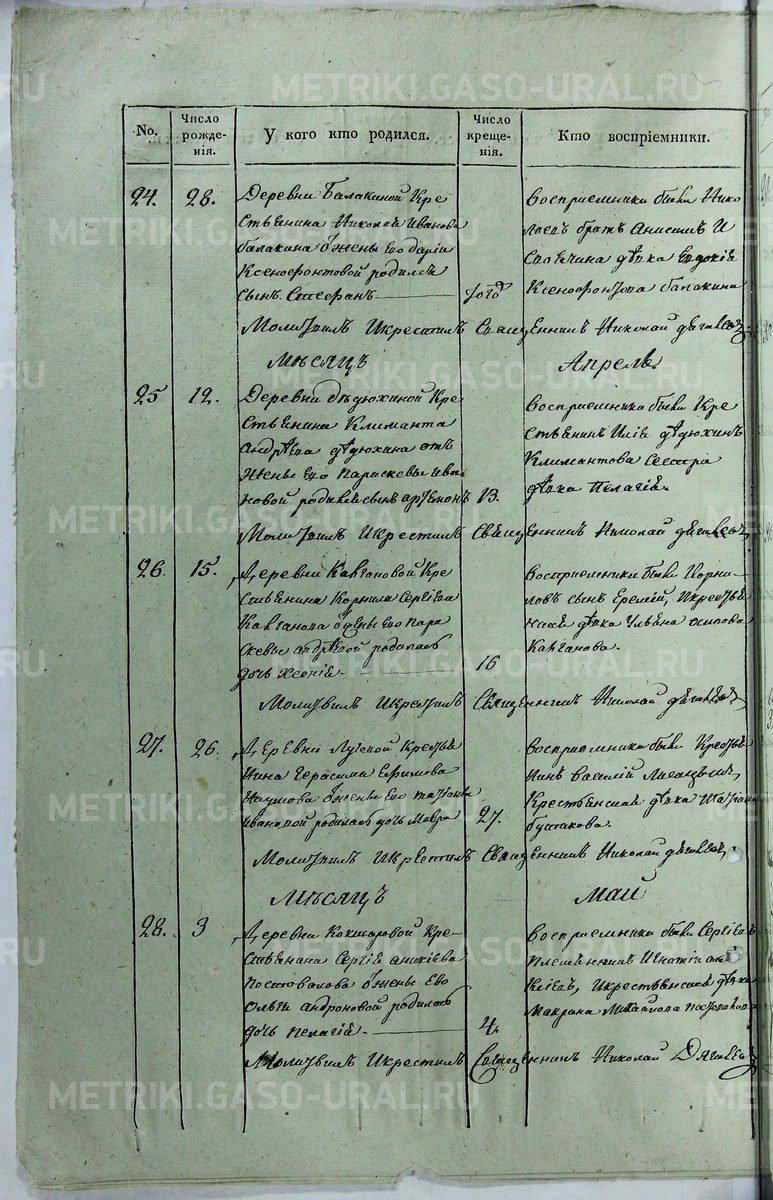 No.
Число рожде-нія.
У кого кто родился.
Число креще-нія.
Кто воспріемники.
24.
28.
Деревни Балакиной Кре
стьянина Николая Иванова
балакина ѿжены его дарiи
Ксенофонтовой родился
сынъ Стефанъ
тогож
Восприемники были Нико
лаевъ братъ Анисимъ И
дѣвка Евдокiя
Ксенофонтова балакина
Молитвилъ Икрестилъ Священникъ Николай
Мѣсяцъ Апрель
25
12.
Деревни дѣдюхиной Кре
стьянина Климанта
андрѣева дѣдюхина отъ
жены его Парискевы ива
новой родился сынъ артемонъ
13.
Восприемники были Кре
стьянинъ Илiя дѣдюхинъ
Климантова сестра
дѣвка Пелагiя.
Молитвилъ Икрестилъ Священникъ Николай
26.
15.
Деревни Кайгановой Кре
стьянина Корнила Сергiева
Кайганова ѿжены его Пара
скевы андрѣевой родилась
дочь Ксенiя
16
Восприемники были Корни-
ловъ сынъ Еремiй, Икрестья
нская дѣвка Ульяна осипова
Кайганова.
Молитвилъ Икрестилъ Священникъ Николай
27.
26.
Деревни Луговой Крестья
нина Герасима Ефимова
Наумова ѿжены его татьяны
ивановой родилась дочь Мавра
27.
Восприемники были Крестья
нинъ Василiй
Крестьянская дѣвка Татьяна
бушакова.
Молитвилъ Икрестилъ Священникъ Николай
Мѣсяцъ Май
28.
3
Деревни Кокшаровой Кре-
стьянина Сергiя аникiева
Постовалова ѿжены Ево
Ольги андроновой родилась
дочь Пелагiя.
4.
Восприемники были Сергiевъ
Племянникъ
Икрестьянская дѣвка
Макрина Михайлова
Молитвилъ Икрестилъ Священникъ Николай
METRIKI.GASO-URAL.RU